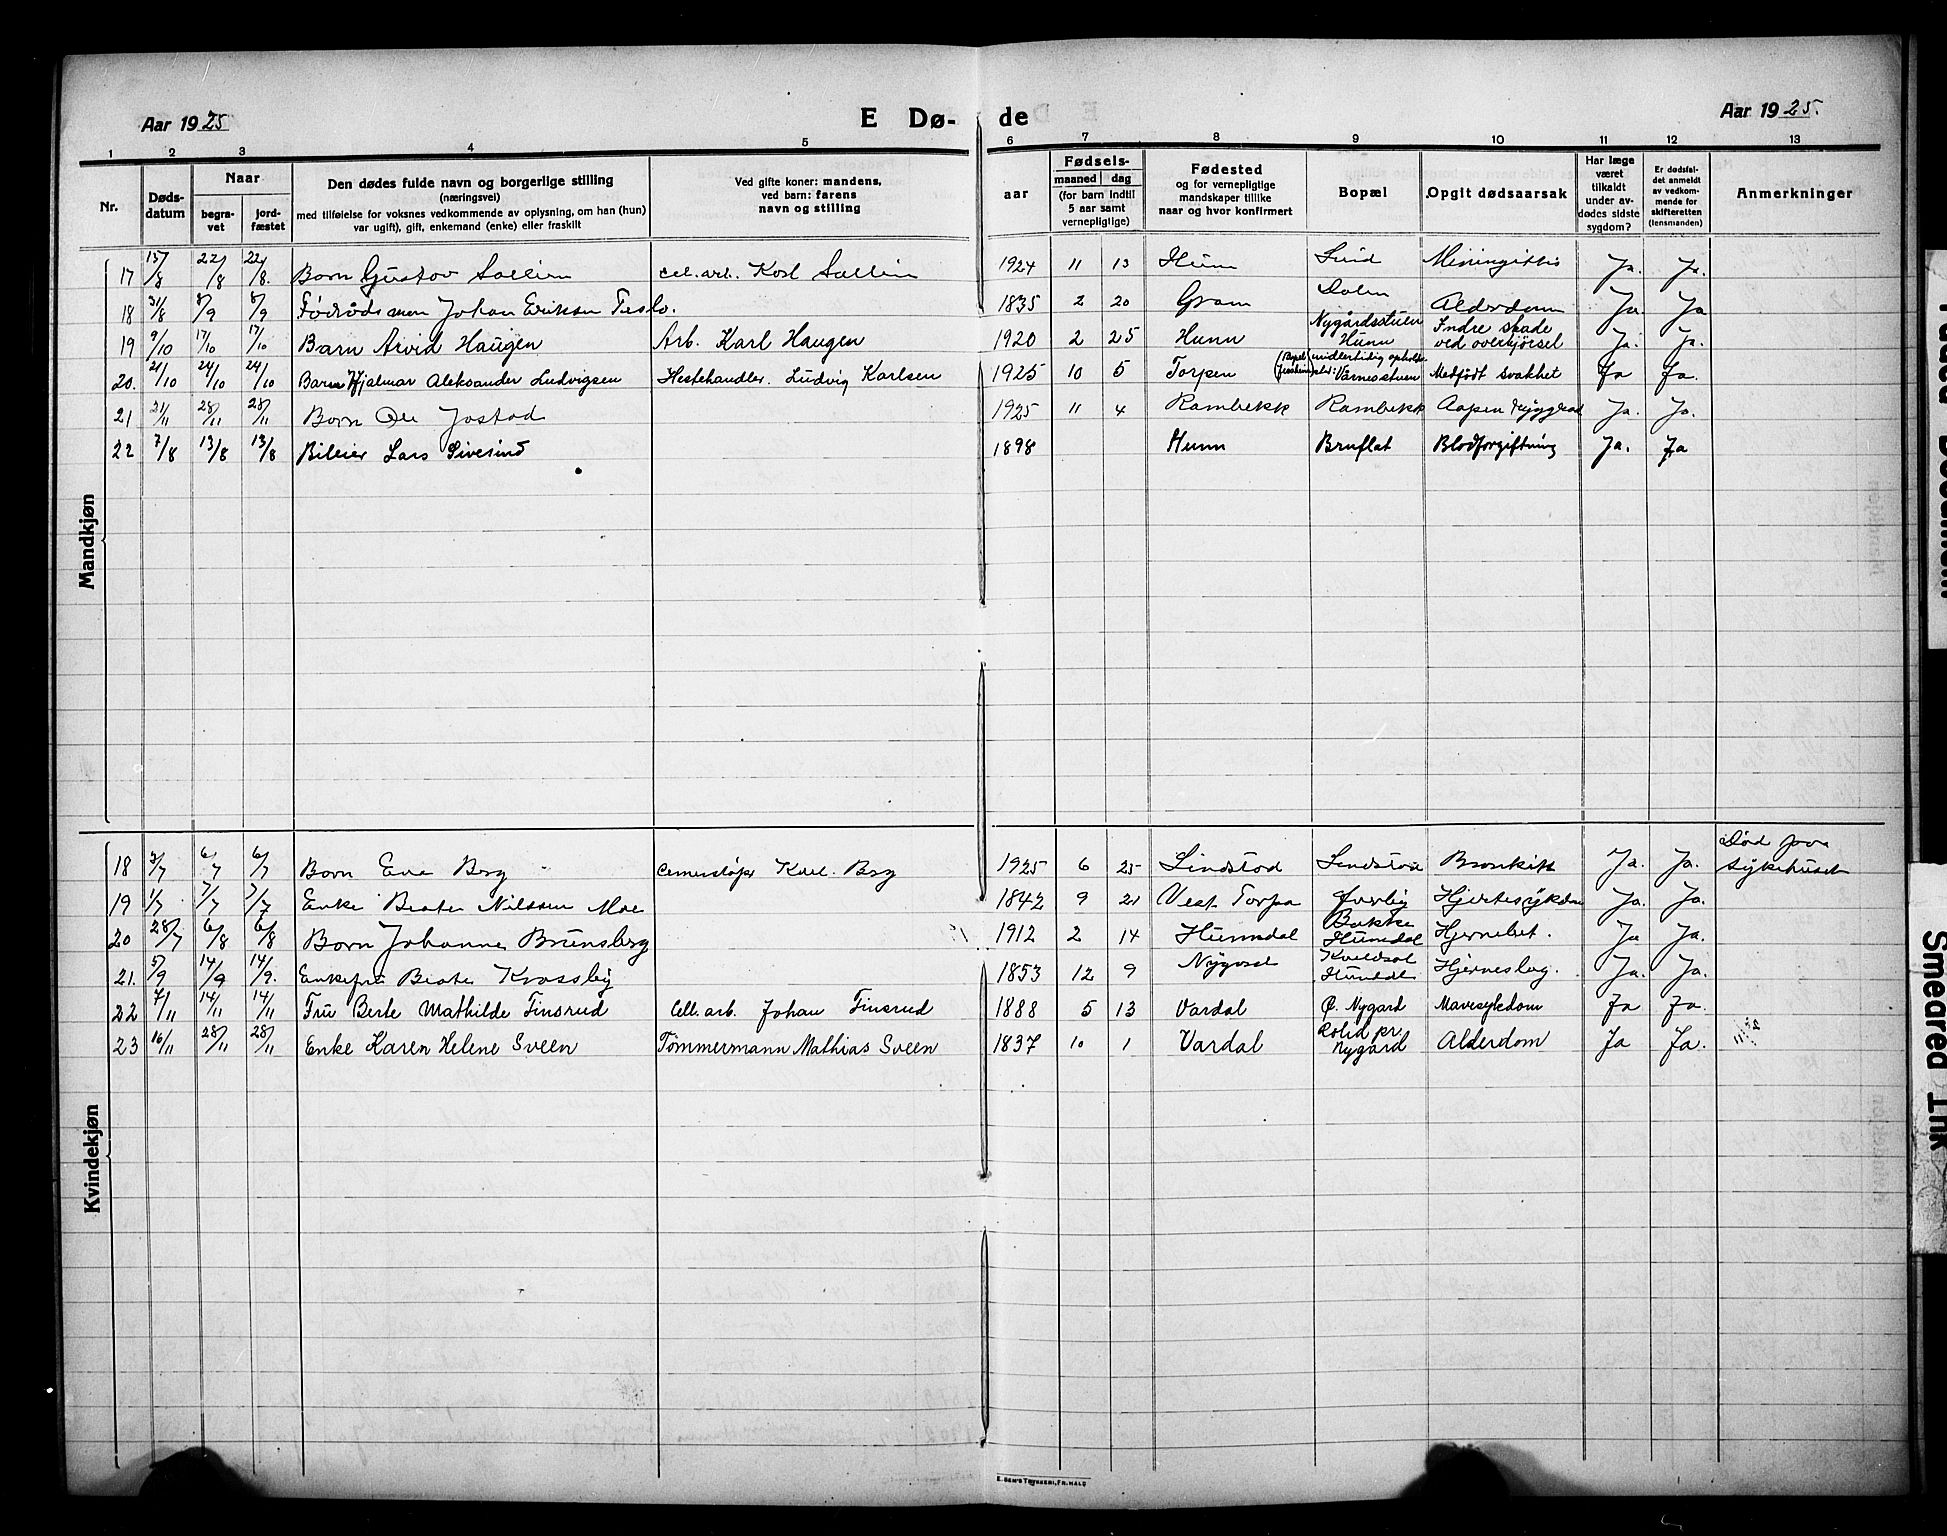 Aar 1925
E Dø-
de
Aar 1925.
1 2 3 4 5 6 7 8 9 10 11 12 13
Nr.
Døds-
datum
Naar
begra-
vet
jord-
fæstet
Den dødes fulde navn og borgerlige stilling
(næringsvei)
med tilføielse for voksnes vedkommende av oplysning, om han (hun)
var ugift), gift, enkemand (enke) eller fraskilt
Ved gifte koner: mandens,
ved barn: farens
navn og stilling
aar
Fødsels-
maaned dag
(for barn indtil
5 aar samt
vernepligtige)
Fødested
og for vernepligtige
mandskaper tillike
naar og hvor konfirmert
Bopæl
Opgit dødsaarsak
Har læge
været
tilkaldt
under av-
dødes sidste
sygdom?
Er dødsfal-
det anmeldt
av vedkom-
mende for
skifteretten
(lensmanden)
Anmerkninger
Mandkjøn
17 15/8 22/8 22/8. Barn Gustav Sollien cel. arb. Karl Sollien 1924 11 13 Hunn Lund Meningittis Ja. Ja.
18 31/8 8/9 8/9 Føderådsmon Johan Eriksen 1835 2 20 Gran Dalen Alderdom Ja Ja
19 9/10 17/10 17/10 Barn Arvid Haugen Arb. Karl Haugen 1920 2 25 Hunn Nygårdsstuen Hunn Indre skade ved overkjørsel Ja. Ja.
20. 21/10 24/10 24/10 Barn Hjalmar Aleksander Ludvigsen Hestehandler. Ludvig Karlsen 1925 10 5 Torpen midlertidig opholds- sted: Varnesstuen Medfødt svakhet Ja Ja.
21 21/11 28/11 28/11 Barn Ole Jostad 1925 11 4 Rambekk Rambekk Aapen ryggrad Ja. Ja.
22 7/8 13/8 13/8 Bileier Lars Sivesind 1898 Hunn Bruflat Blodforgiftning Ja. Ja
Kvindekjøn
18 3/7 6/7 6/7 Barn Eva Berg Karl. Berg 1925 6 25 Lindstad Lindstad Bronkitt Ja. Ja. Død paa sykehuset
19 1/7 7/7 7/7 Enke Beate Nilssen Moe 1842 9 21 Vest. Torpa Øverby Hjertesykdom Ja. Ja.
20 28/7 6/8 6/8 Barn Johanne Brunsberg 1912 2 14 Hunndal Bakke Hunndal Hjernebet. Ja Ja.
21. 5/9 14/9 14/9. Enkefru Beate Krossby 1853 12 9 Nygard Hunndal Hjerneslag. Ja. Ja.
22 7/11 14/11 14/11 Fru Berte Mathilde Finsrud Cell. arb. Johan Finsrud 1888 5 13 Vardal Ø. Nygard Mavesykdom Ja Ja.
23 16/11 28/11 28/11 Enke Karen Helene Sveen Tømmermann Mathias Sveen 1837 10 1 Vardal Rolid pr. Nygård Alderdom Ja Ja.
Smeared Ink